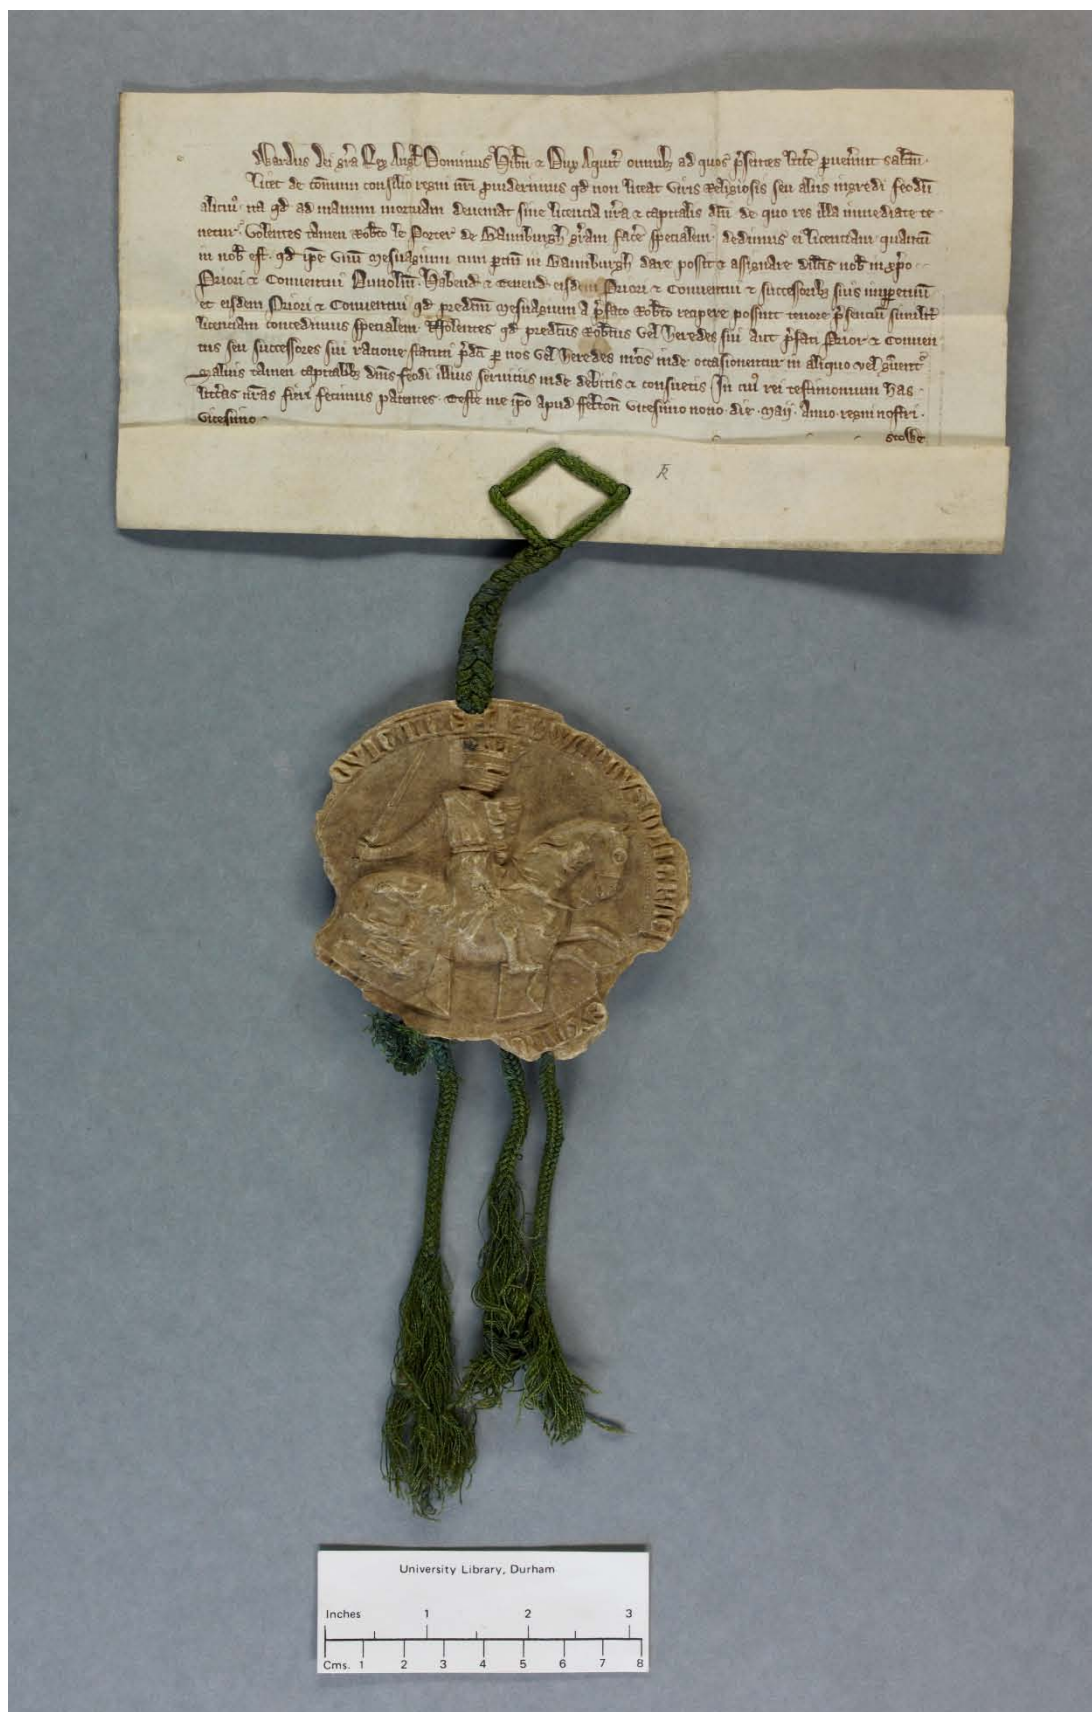 Wardus dei gr̄a Rex Angl̄ Dominus Hib̄n̄ & Dux Aquit̄ omnib; ad quos p̄sentes litt̄e p̱ven̄int salt̄m̄.
Licet de cōmuni consilio regni nr̄i p̱viderimus qd̄ non liceat viris Religiosis seu aliis ingredi feodū
alicui⁹. ita qd̄ ad manum mortuam deveniat sine licencia nr̄a & capitalis dn̄i de quo res illa inmediate te
netur. Volentes tamen Rob̄to le Porter de Baumburgh gr̄am fac̄e specialem dedimus ei licenciam quantū
in nob̄ est. qd̄ ip̄e unū Mesuagium cum p̱tin̄ in Baumburgh dare possit & assignare dil̄c̄is nob̄ in xp̄o
Priori & Conventui Dunolm̄. Habend̄ & Tenend̄ eisdem Priori & Conventui & successorib; suis inp̱petuū
et eisdem Priori & Conventui qd̄ pred̄c̄m̄ Mesuagium a p̄fato Rob̄to recipere possint tenore p̄senciū similit̄
licenciam concedimus specialem. Nolentes qd̄ pred̄c̄us Rob̄tus vel heredes sui aut p̄fati Prior & Conven
tus seu successores sui racione statuti p̄d̄c̄i p̱ nos vel heredes nr̄os inde occasionentur in aliquo vel ḡvent̄
Salvis tamen capitalib; dn̄is feodi illius serviciis inde debitis & consuetis In cui⁹ rei testimonium has
litt̄as nr̄as fieri fecimus patentes. Teste me ip̄o apud ffelton̄ vicesimo nono. die. Maij. Anno. regni nostri.
vicesimo
Stowe
EDWARDVS DI GRACI
University Library, Durham
Inches 1 2 3
Cms. 1 2 3 4 5 6 7 8